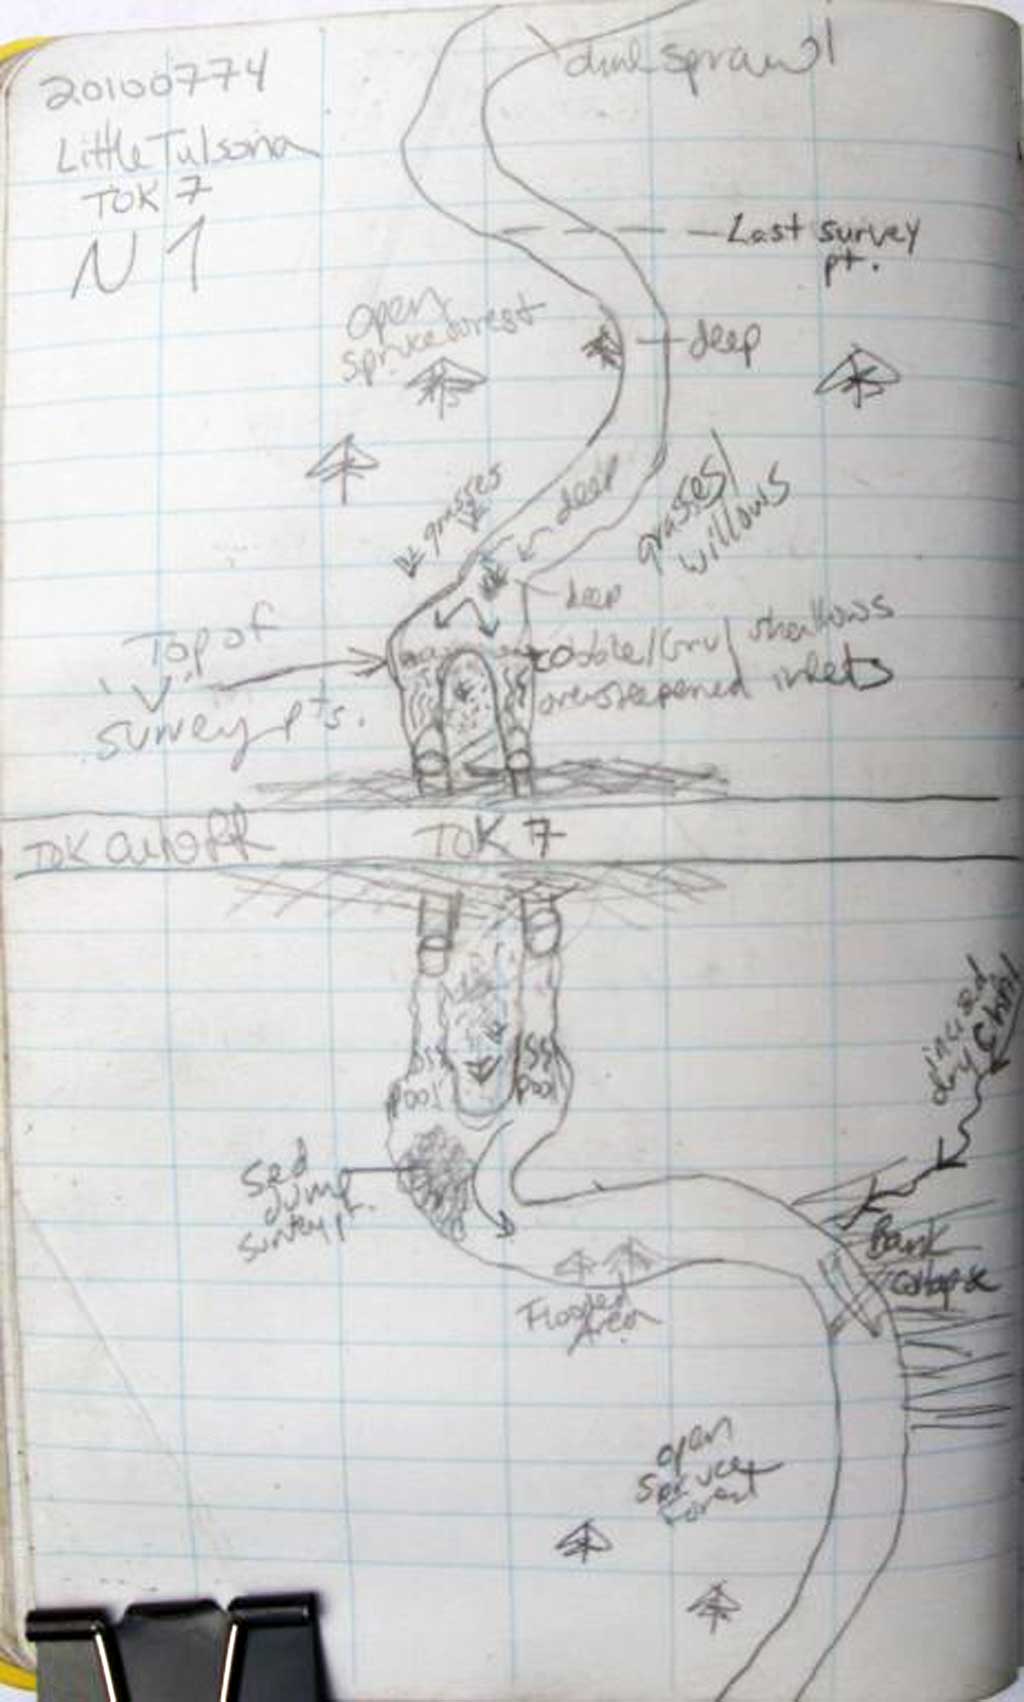 20100774
Little Tulsona
TOK 7
N 1
Last survey
pt.
open
spruce forest
deep
grasses
deep
grasses/
willows
deep
Top of
"V"
survey pts.
cobble/Grvl shallows
oversteepened inlets
TOK Cutoff
TOK 7
incised
dry Chnl
pool
pool
Sed
dump
survey pt.
Bank
collapse
Flooded
Area
open
Spruce
Forest